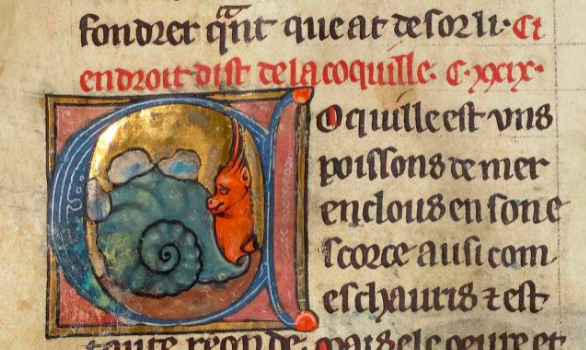 fondrer qant que at desor li· Ci
endroit dist de la coquille· C·xxix·
Coquille est vns
poissons de mer
enclous en son e
scorce ausi com
eschauris ⁊ est
toute reonde· mais ele oeure et